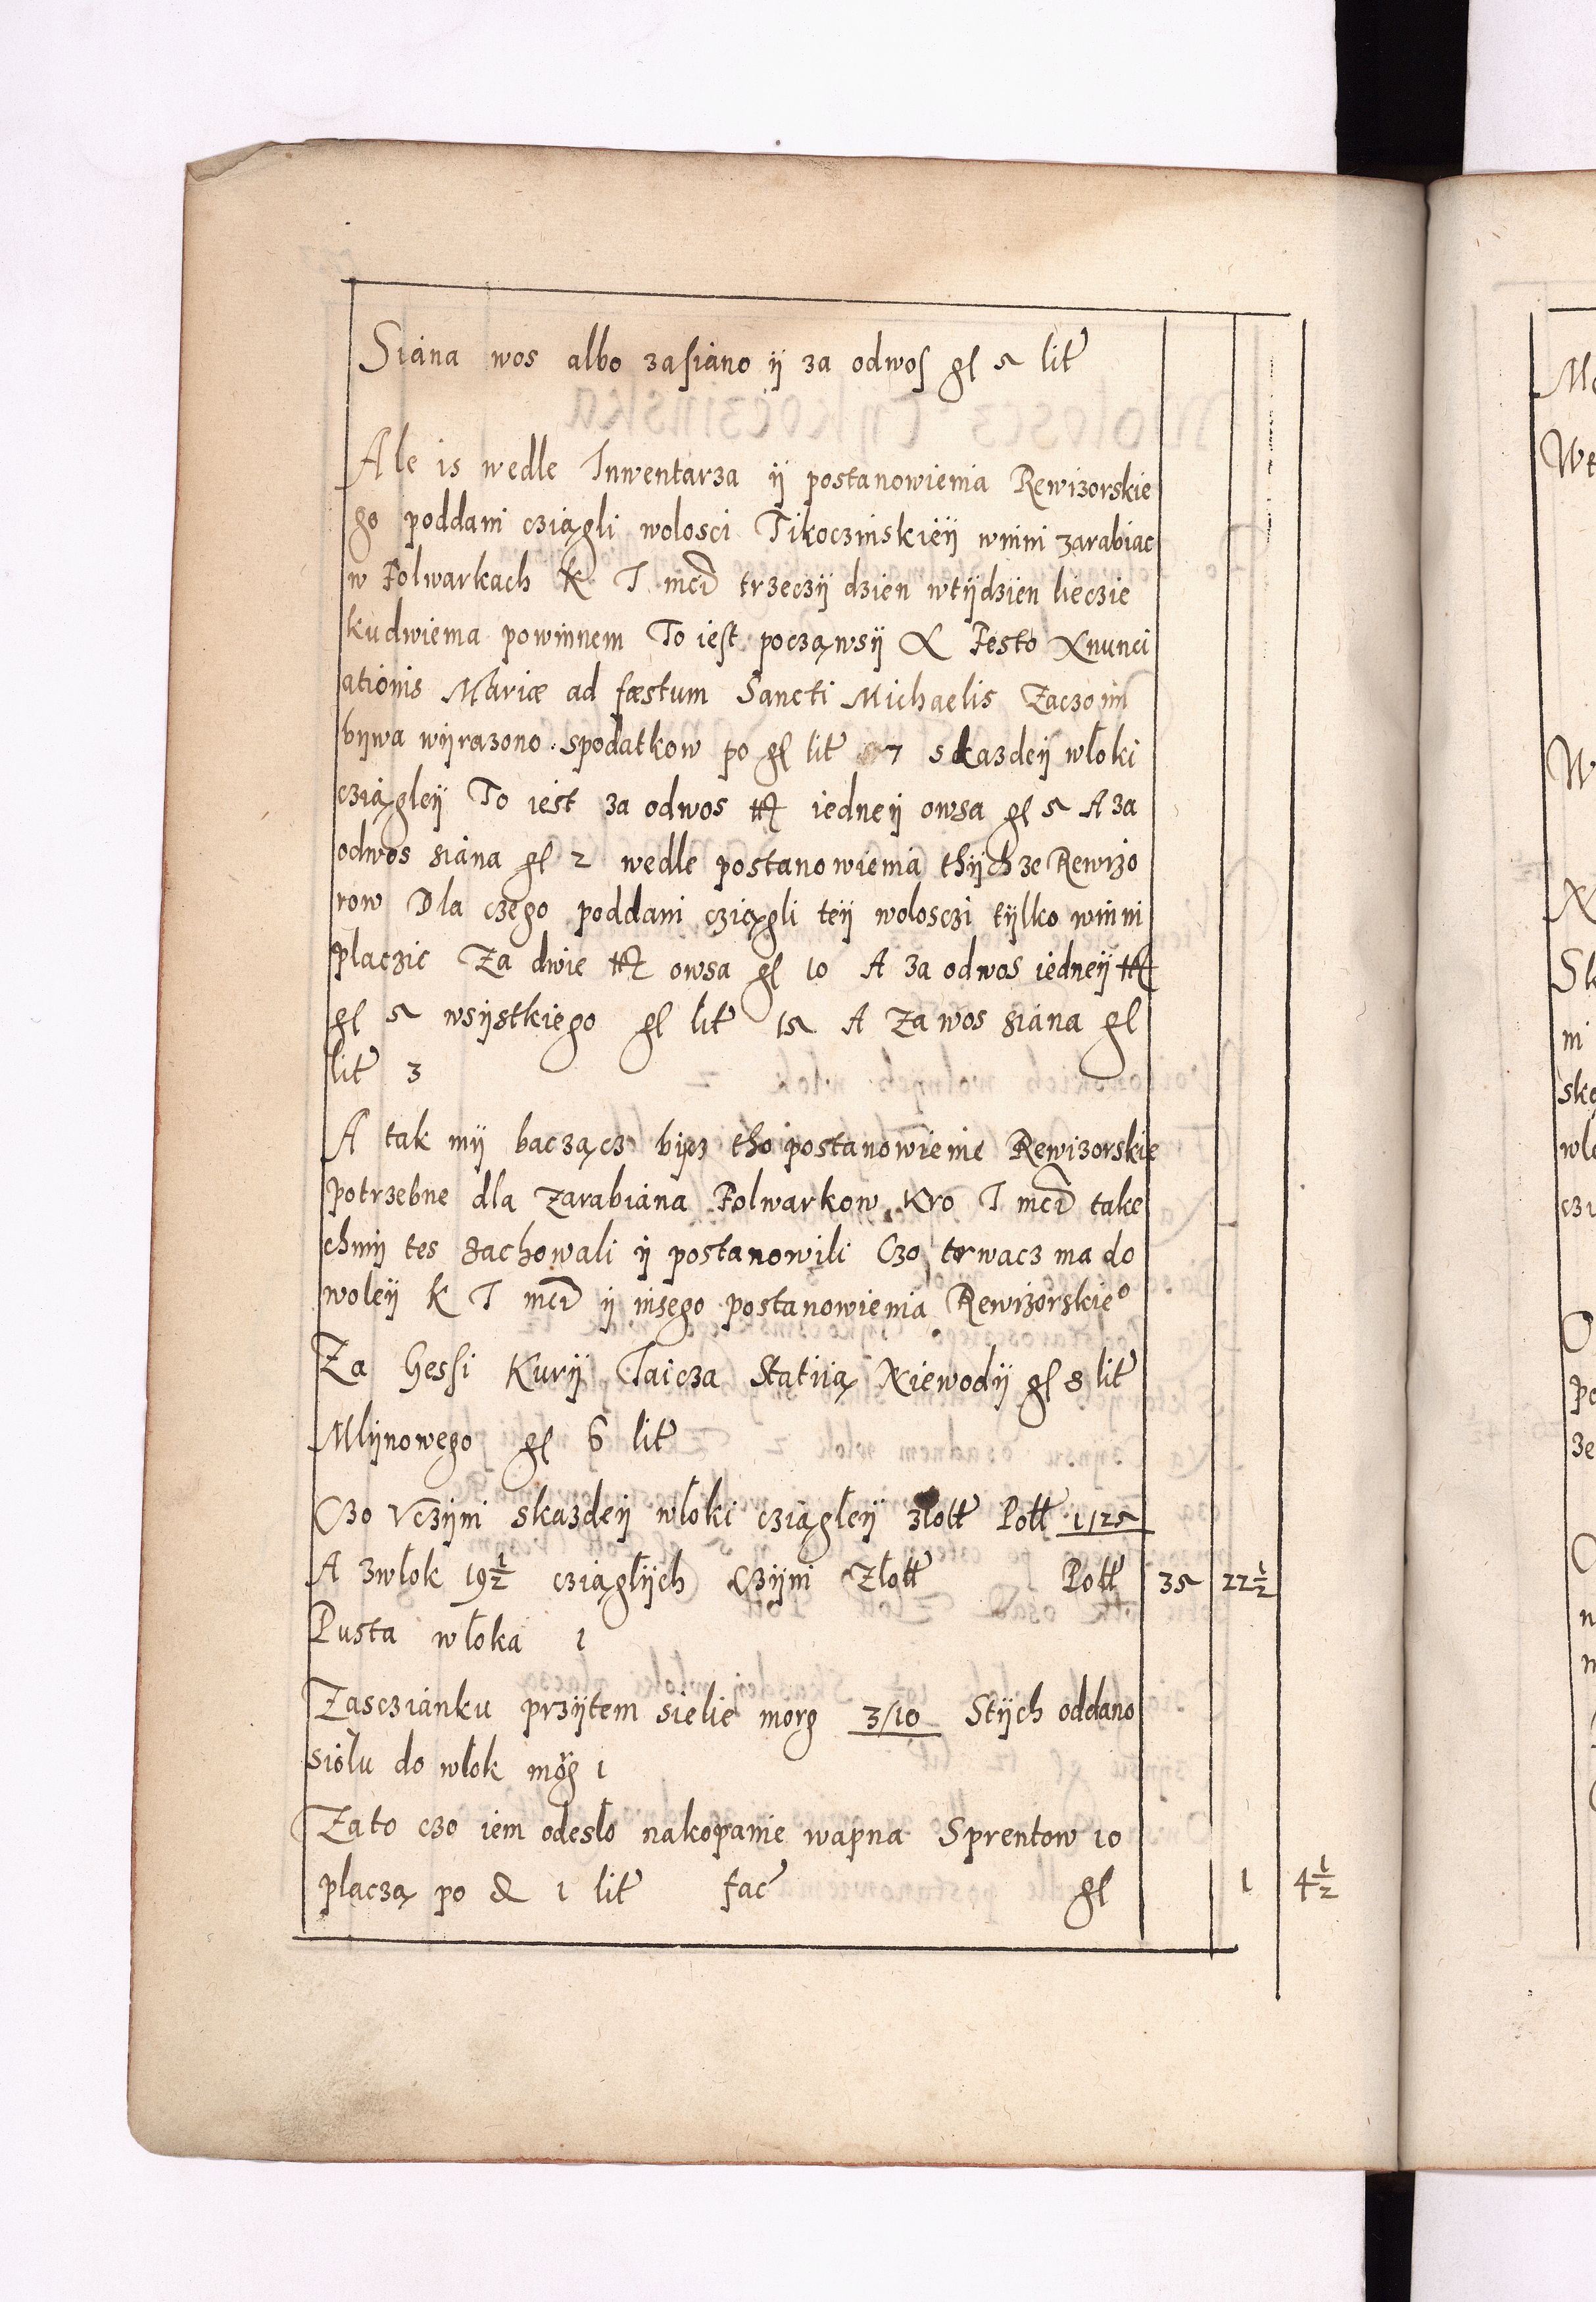 Siana wos albo zasiano ij za odwos gl 5 lit
Ale is wedle Inwentarza ij postanowienia Rewizorskie
go poddani cziągli wolosci Tikoczinskieij winni zarabiac
w Folwarkach K I mci trzeczij dzien wtijdzien lieczie
kudwiema powinnem To iest począwsij A Festo Anunci
ationis Mariæ ad fæstum Sancti Michaelis Zaczo im
bijwa wijrazono spodatkow po gl lit 7 skazdeij włoki
cziągleij To iest za odwos iedneij owsa gl 5 A za
odwos siana gl 2 wedle postanowienia thijchze Rewizo
row Dla czego poddani cziągli teij wolosczi tijlko winni
placzic Za dwie owsa gl 10 A za odwos iedneij
gl 5 wsijstkiego gl lit 15 A Za wos siana gl
lit 3
A tak mij bacząc bijcz tho postanowienie Rewizorskie
potrzebne dla zarabiana Folwarkow Kro I mci take
chmij tes zachowali ij postanowili Czo trwacz ma do
woleij K I mci ij insego postanowienia Rewizorskieo
Za Gessi Kurij Iaicza Statiią Niewodij gl 8 lit
Mlijnowego gl 6 lit
Czo vczijni skazdeij włoki cziągłeij złott Poll 1/25
A zwłok 19½ cziągłijch Czijni Złott Poll 35 22½
Pusta włoka 1
Zasczianku przijtem sielie morg 3/10 Stijch oddano
siołu do włok morg 1
Zato czo iem odesło nakopanie wapna Sprentow 10
placzą po d 1 lit fac gl 1 4½